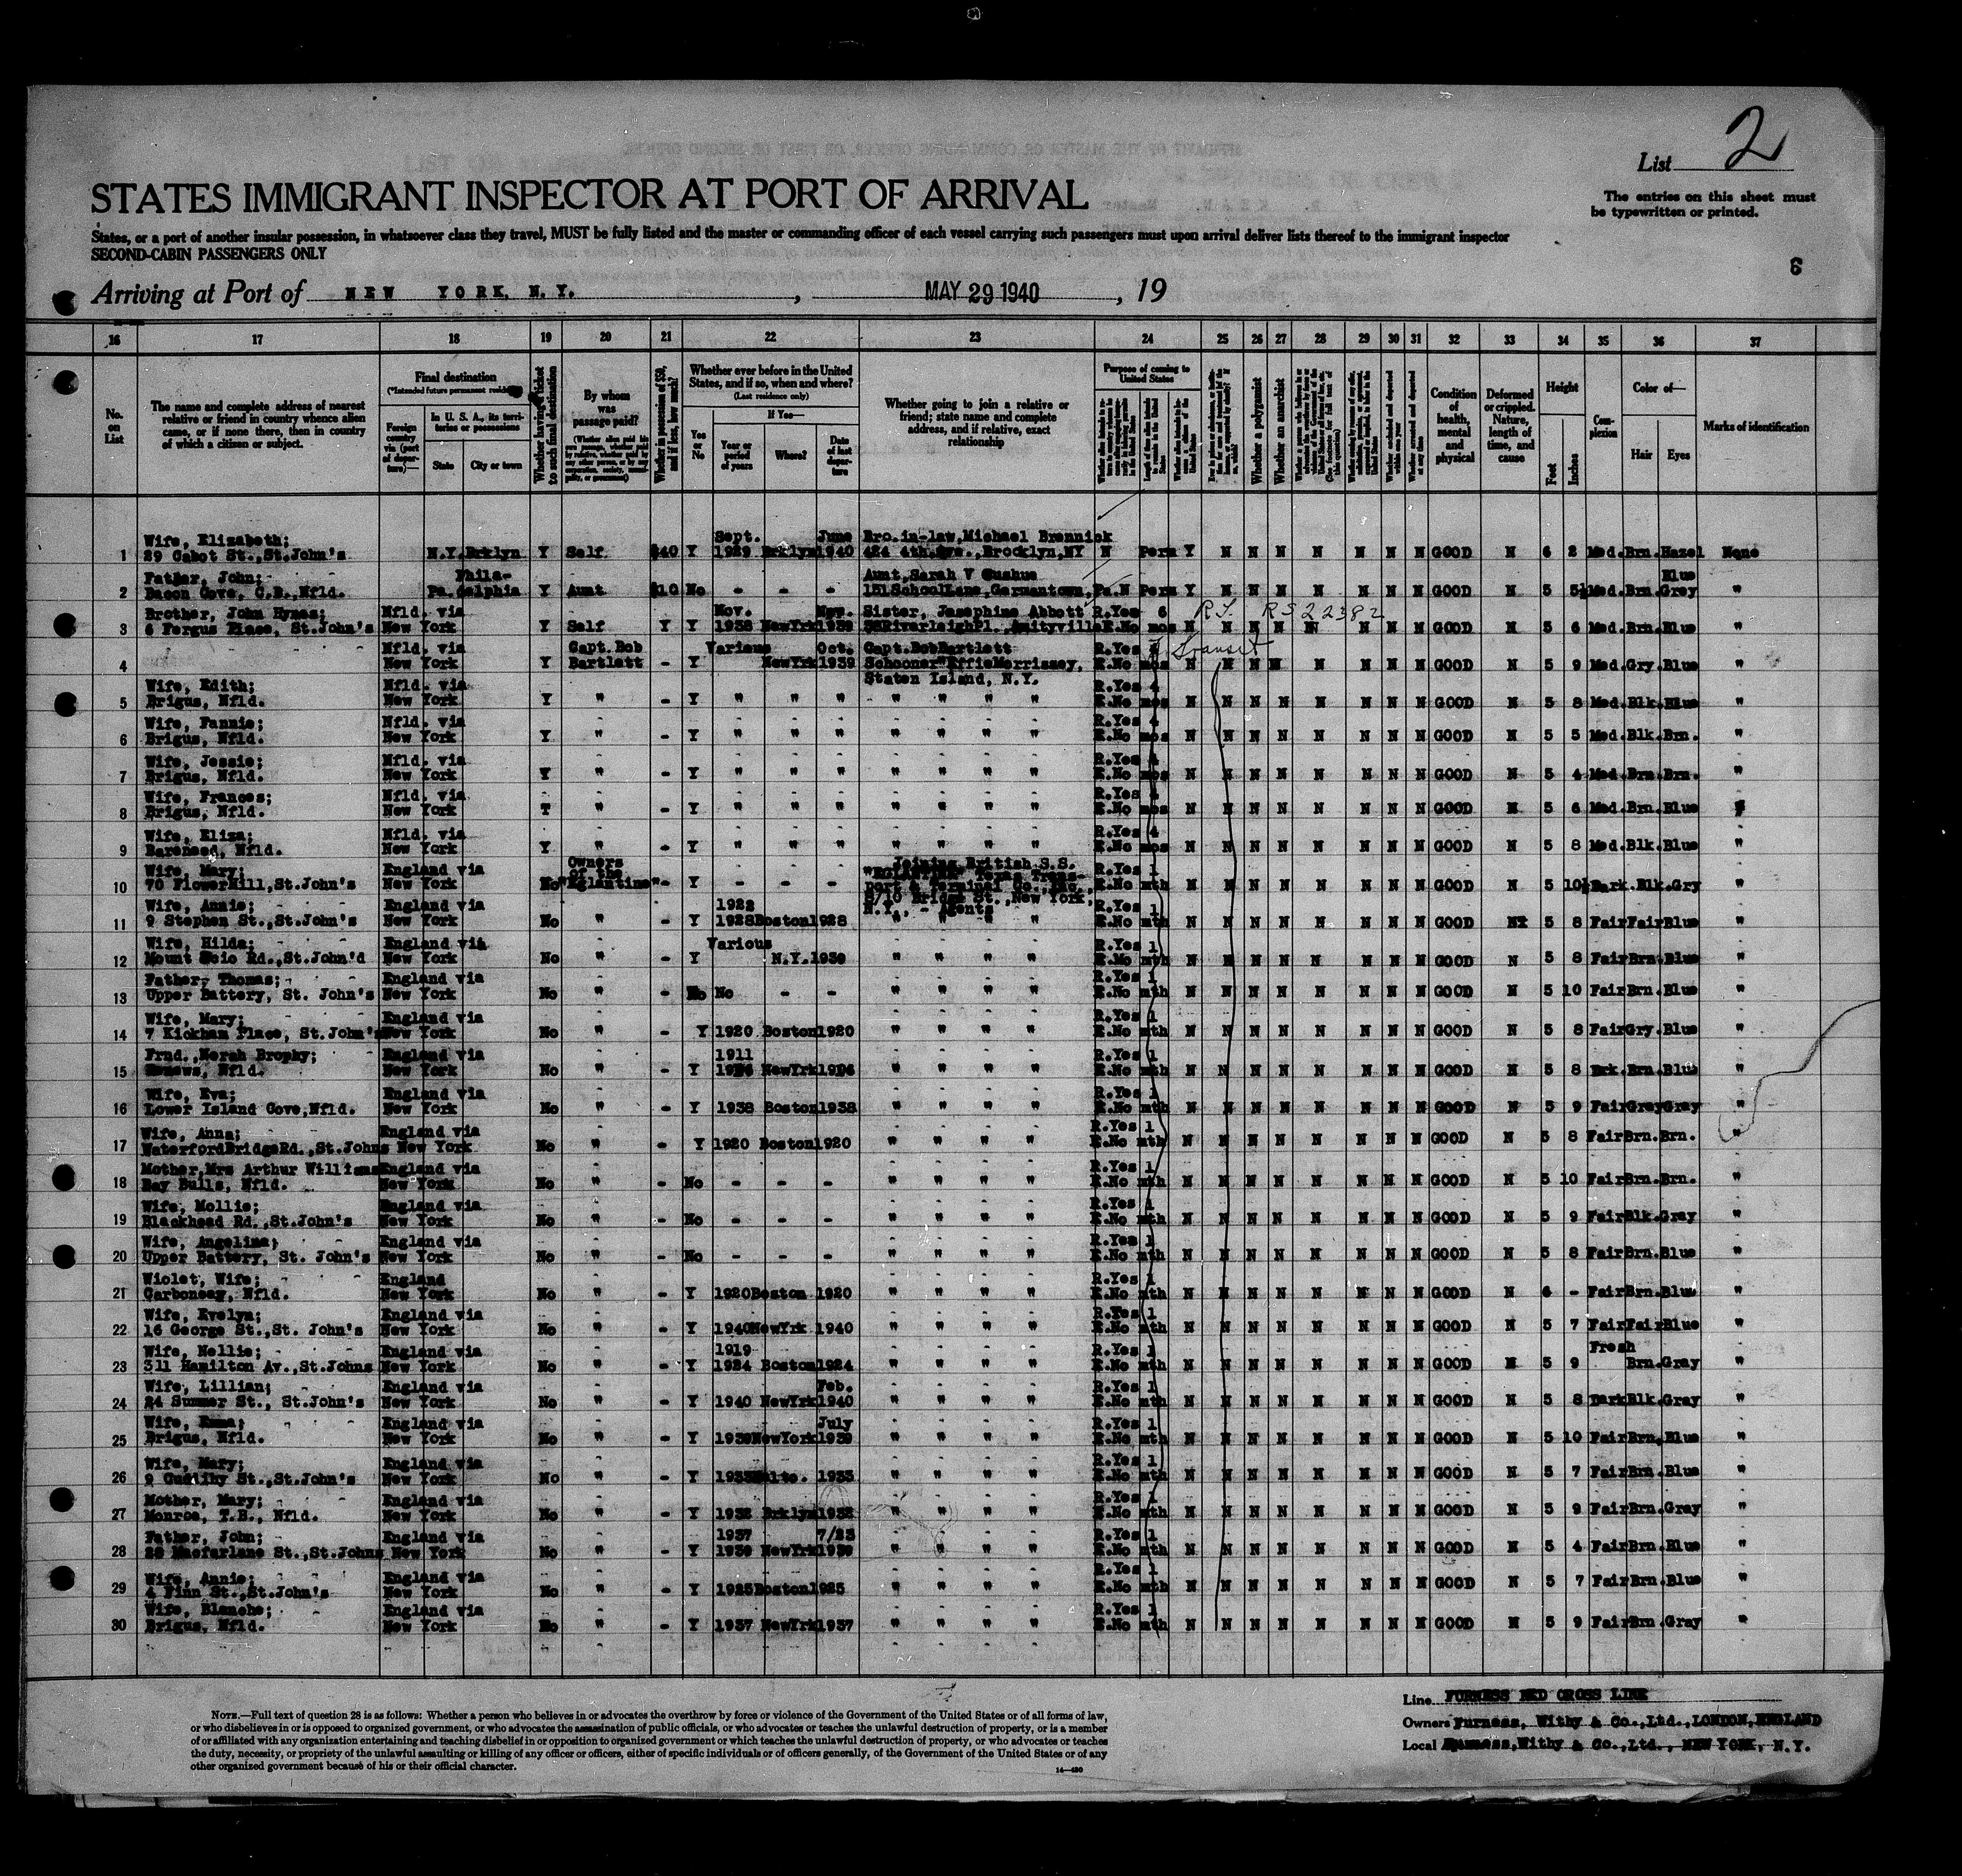 List 2
The entries on this sheet must
be typewritten or printed.
STATES IMMIGRANT INSPECTOR AT PORT OF ARRIVAL
States, or a port of another insular possession, in whatsoever class they travel, MUST be fully listed and the master or commanding officer of each vessel carrying such passengers must upon arrival deliver lists thereof to the immigrant inspector
SECOND-CABIN PASSENGERS ONLY
6
Arriving at Port of NEW YORK, N.Y. , MAY 29 1940 , 19
16 17 18 19 20 21 22 23 24 25 26 27 28 29 30 31 32 33 34 35 36 37
No. on List
The name and complete address of nearest relative or friend in country whence alien came, or if none there, then in country of which a citizen or subject.
Final destination
Foreign country via (port of departure)
In U. S. A., its territories or possessions
State
City or town
Whether having a ticket to such final destination
By whom was passage paid?
Whether in possession of $50, and if less, how much?
Whether ever before in the United States, and if so, when and where?
(Last residence only)
Yes or No
If Yes—
Year or period of years
Where?
Date of last departure
Whether going to join a relative or friend; state name and complete address, and if relative, exact relationship
Purpose of coming to United States
Whether a polygamist
Whether an anarchist
Condition of health, mental and physical
Deformed or crippled. Nature, length of time, and cause
Height
Feet
Inches
Complexion
Color of—
Hair
Eyes
Marks of identification
Wife, Elizabeth; Sept. June Bro.in-law, Michael Brennick
1 29 Cabot St.,St.John's N.Y. Brklyn Y Self $40 Y 1929 Brklyn 1940 424 4th Ave.,Brooklyn,NY N Perm Y N N N N N N N GOOD N 6 2 Med. Brn. Hazel None
Father, John; Phila- Aunt, Sarah V Cushue Blue
2 Bacon Cove, C.B.,Nfld. Pa. delphia Y Aunt $10 No - - - 151SchoolLane,Germantown,Pa. N Perm Y N N N N N N N GOOD N 5 5½ Med. Brn. Grey "
Brother, John Hynes; Nfld. via Nov. Nov. Sister, Josephine Abbott R.Yes 6 RS 22382
3 6 Fergus Place, St.John's New York Y Self Y Y 1938 NewYrk 1939 Riverleigh Pl., Amityville E.No mos N N N N N N N N GOOD N 5 6 Med. Brn. Blue "
Nfld. via Capt.Bob Various Oct. Capt.BobBartlett R.Yes Transit
4 New York Y Bartlett - Y NewYrk 1939 Schooner"EffieMorrissey, E.No mos N N N N N N N N GOOD N 5 9 Med. Gry. Blue "
Staten Island, N.Y.
Wife, Edith; Nfld. via R.Yes 4
5 Brigus, Nfld. New York Y " - Y " " " " " " " E.No mos N N N N N N N N GOOD N 5 8 Med. Blk. Blue "
Wife, Fannie; Nfld. via R.Yes 4
6 Brigus, Nfld. New York Y " - Y " " " " " " " E.No mos N N N N N N N N GOOD N 5 5 Med. Blk. Brn. "
Wife, Jessie; Nfld. via R.Yes 4
7 Brigus, Nfld. New York Y " - Y " " " " " " " E.No mos N N N N N N N N GOOD N 5 4 Med. Brn. Brn. "
Wife, Frances; Nfld. via R.Yes 4
8 Brigus, Nfld. New York Y " - Y " " " " " " " E.No mos N N N N N N N N GOOD N 5 6 Med. Brn. Blue "
Wife, Eliza; Nfld. via R.Yes 4
9 Bareneed, Nfld. New York Y " - Y " " " " " " " E.No mos N N N N N N N N GOOD N 5 8 Med. Blk. Blue "
Wife, Mary; England via Owners of the Joining British S.S. R.Yes 1
10 70 FlowerHill,St.John's New York No "Eglantine" - Y - - - "EGLANTINE" Texas Transport & Terminal Co., Inc., E.No mth N N N N N N N N GOOD N 5 10½ Dark. Blk. Gry
8/10 Bridge St.,New York,
N.Y., - Agents
Wife, Annie; England via 1922 R.Yes 1
11 9 Stephen St.,St.John's New York No " - Y 1928 Boston 1928 " " " E.No mth N N N N N N N N GOOD N 5 8 Fair Fair Blue "
Wife, Hilda; England via Various R.Yes 1
12 Mount Scio Rd.,St.John'd New York No " - Y N.Y. 1939 " " " " E.No mth N N N N N N N N GOOD N 5 8 Fair Brn. Blue "
Father, Thomas; England via R.Yes 1
13 Upper Battery, St. John's New York No " - No No - - " " " " E.No mth N N N N N N N N GOOD N 5 10 Fair Brn. Blue "
Wife, Mary; England via R.Yes 1
14 7 Kickham Place, St.John's New York No " - Y 1920 Boston 1920 " " " " E.No mth N N N N N N N N GOOD N 5 8 Fair Gry. Blue "
Frnd.,Norah Brophy; England via 1911 R.Yes 1
15 Nfld. New York No " - Y NewYrk " " " " E.No mth N N N N N N N N GOOD N 5 8 Drk. Brn. Blue "
Wife, Eva; England via R.Yes 1
16 Lower Island Cove,Nfld. New York No " - Y 1938 Boston 1938 " " " " E.No mth N N N N N N N N GOOD N 5 9 Fair Gray Gray "
Wife, Anna; England via R.Yes 1
17 WaterfordBridgeRd.,St.Johns New York No " - Y 1920 Boston 1920 " " " " E.No mth N N N N N N N N GOOD N 5 8 Fair Brn. Brn. "
Mother,Mrs Arthur Williams England via R.Yes 1
18 Bay Bulls, Nfld. New York No " - No - - - " " " " E.No mth N N N N N N N N GOOD N 5 10 Fair Brn. Brn. "
Wife, Mollie; England via R.Yes 1
19 Blackhead Rd.,St.John's New York No " - No - - - " " " " E.No mth N N N N N N N N GOOD N 5 9 Fair Blk. Gray "
Wife, Angelina; England via R.Yes 1
20 Upper Battery, St. John's New York No " - No - - - " " " " E.No mth N N N N N N N N GOOD N 5 8 Fair Brn. Blue "
Wiolet, Wife; England R.Yes 1
21 Carbonear, Nfld. New York No " - Y 1920 Boston 1920 " " " " E.No mth N N N N N N N N GOOD N 6 - Fair Brn. Blue "
Wife, Evelyn; England via R.Yes 1
22 16 George St.,St. John's New York No " - Y 1940 NewYrk 1940 " " " " E.No mth N N N N N N N N GOOD N 5 7 Fair Fair Blue "
Wife, Nellie; England via 1919 R.Yes 1 Fresh
23 311 Hamilton Av.,St.Johns New York No " - Y 1924 Boston 1924 " " " " E.No mth N N N N N N N N GOOD N 5 9 Brn. Gray "
Wife, Lillian; England via Feb. R.Yes 1
24 24 Summer St., St.John's New York No " - Y 1940 NewYrk 1940 " " " " E.No mth N N N N N N N N GOOD N 5 8 Dark Blk. Gray "
Wife, Emma; England via July R.Yes 1
25 Brigus, Nfld. New York No " - Y 1939 NewYork 1939 " " " " E.No mth N N N N N N N N GOOD N 5 10 Fair Brn. Blue "
Wife, Mary; England via R.Yes 1
26 9 St.,St.John's New York No " - Y 1933 Balto. 1933 " " " " E.No mth N N N N N N N N GOOD N 5 7 Fair Brn. Blue "
Mother, Mary; England via R.Yes 1
27 Monroe, T.B., Nfld. New York No " - Y 1932 Brklyn 1932 " " " " E.No mth N N N N N N N N GOOD N 5 9 Fair Brn. Gray "
Father, John; England via 1937 7/23 R.Yes 1
28 28 Macfarlane St.,St.Johns New York No " - Y 1939 NewYrk 1939 " " " " E.No mth N N N N N N N N GOOD N 5 4 Fair Brn. Blue "
Wife, Annie; England via R.Yes 1
29 4 Finn St.,St.John's New York No " - Y 1925 Boston 1925 " " " " E.No mth N N N N N N N N GOOD N 5 7 Fair Brn. Blue "
Wife, Blanche; England via R.Yes 1
30 Brigus, Nfld. New York No " - Y 1937 NewYrk 1937 " " " " E.No mth N N N N N N N N GOOD N 5 9 Fair Brn. Gray "
Line FURNESS RED CROSS LINE
Owners Furness, Withy & Co.,Ltd.,LONDON,ENGLAND
Local Furness,Withy & Co.,Ltd., NEW YORK, N.Y.
NOTE.—Full text of question 28 is as follows: Whether a person who believes in or advocates the overthrow by force or violence of the Government of the United States or of all forms of law,
or who disbelieves in or is opposed to organized government, or who advocates the assassination of public officials, or who advocates or teaches the unlawful destruction of property, or is a member
of or affiliated with any organization entertaining and teaching disbelief in or opposition to organized government or which teaches the unlawful destruction of property, or who advocates or teaches
the duty, necessity, or propriety of the unlawful assaulting or killing of any officer or officers, either of specific individuals or of officers generally, of the Government of the United States or of any
other organized government because of his or their official character.
14—480